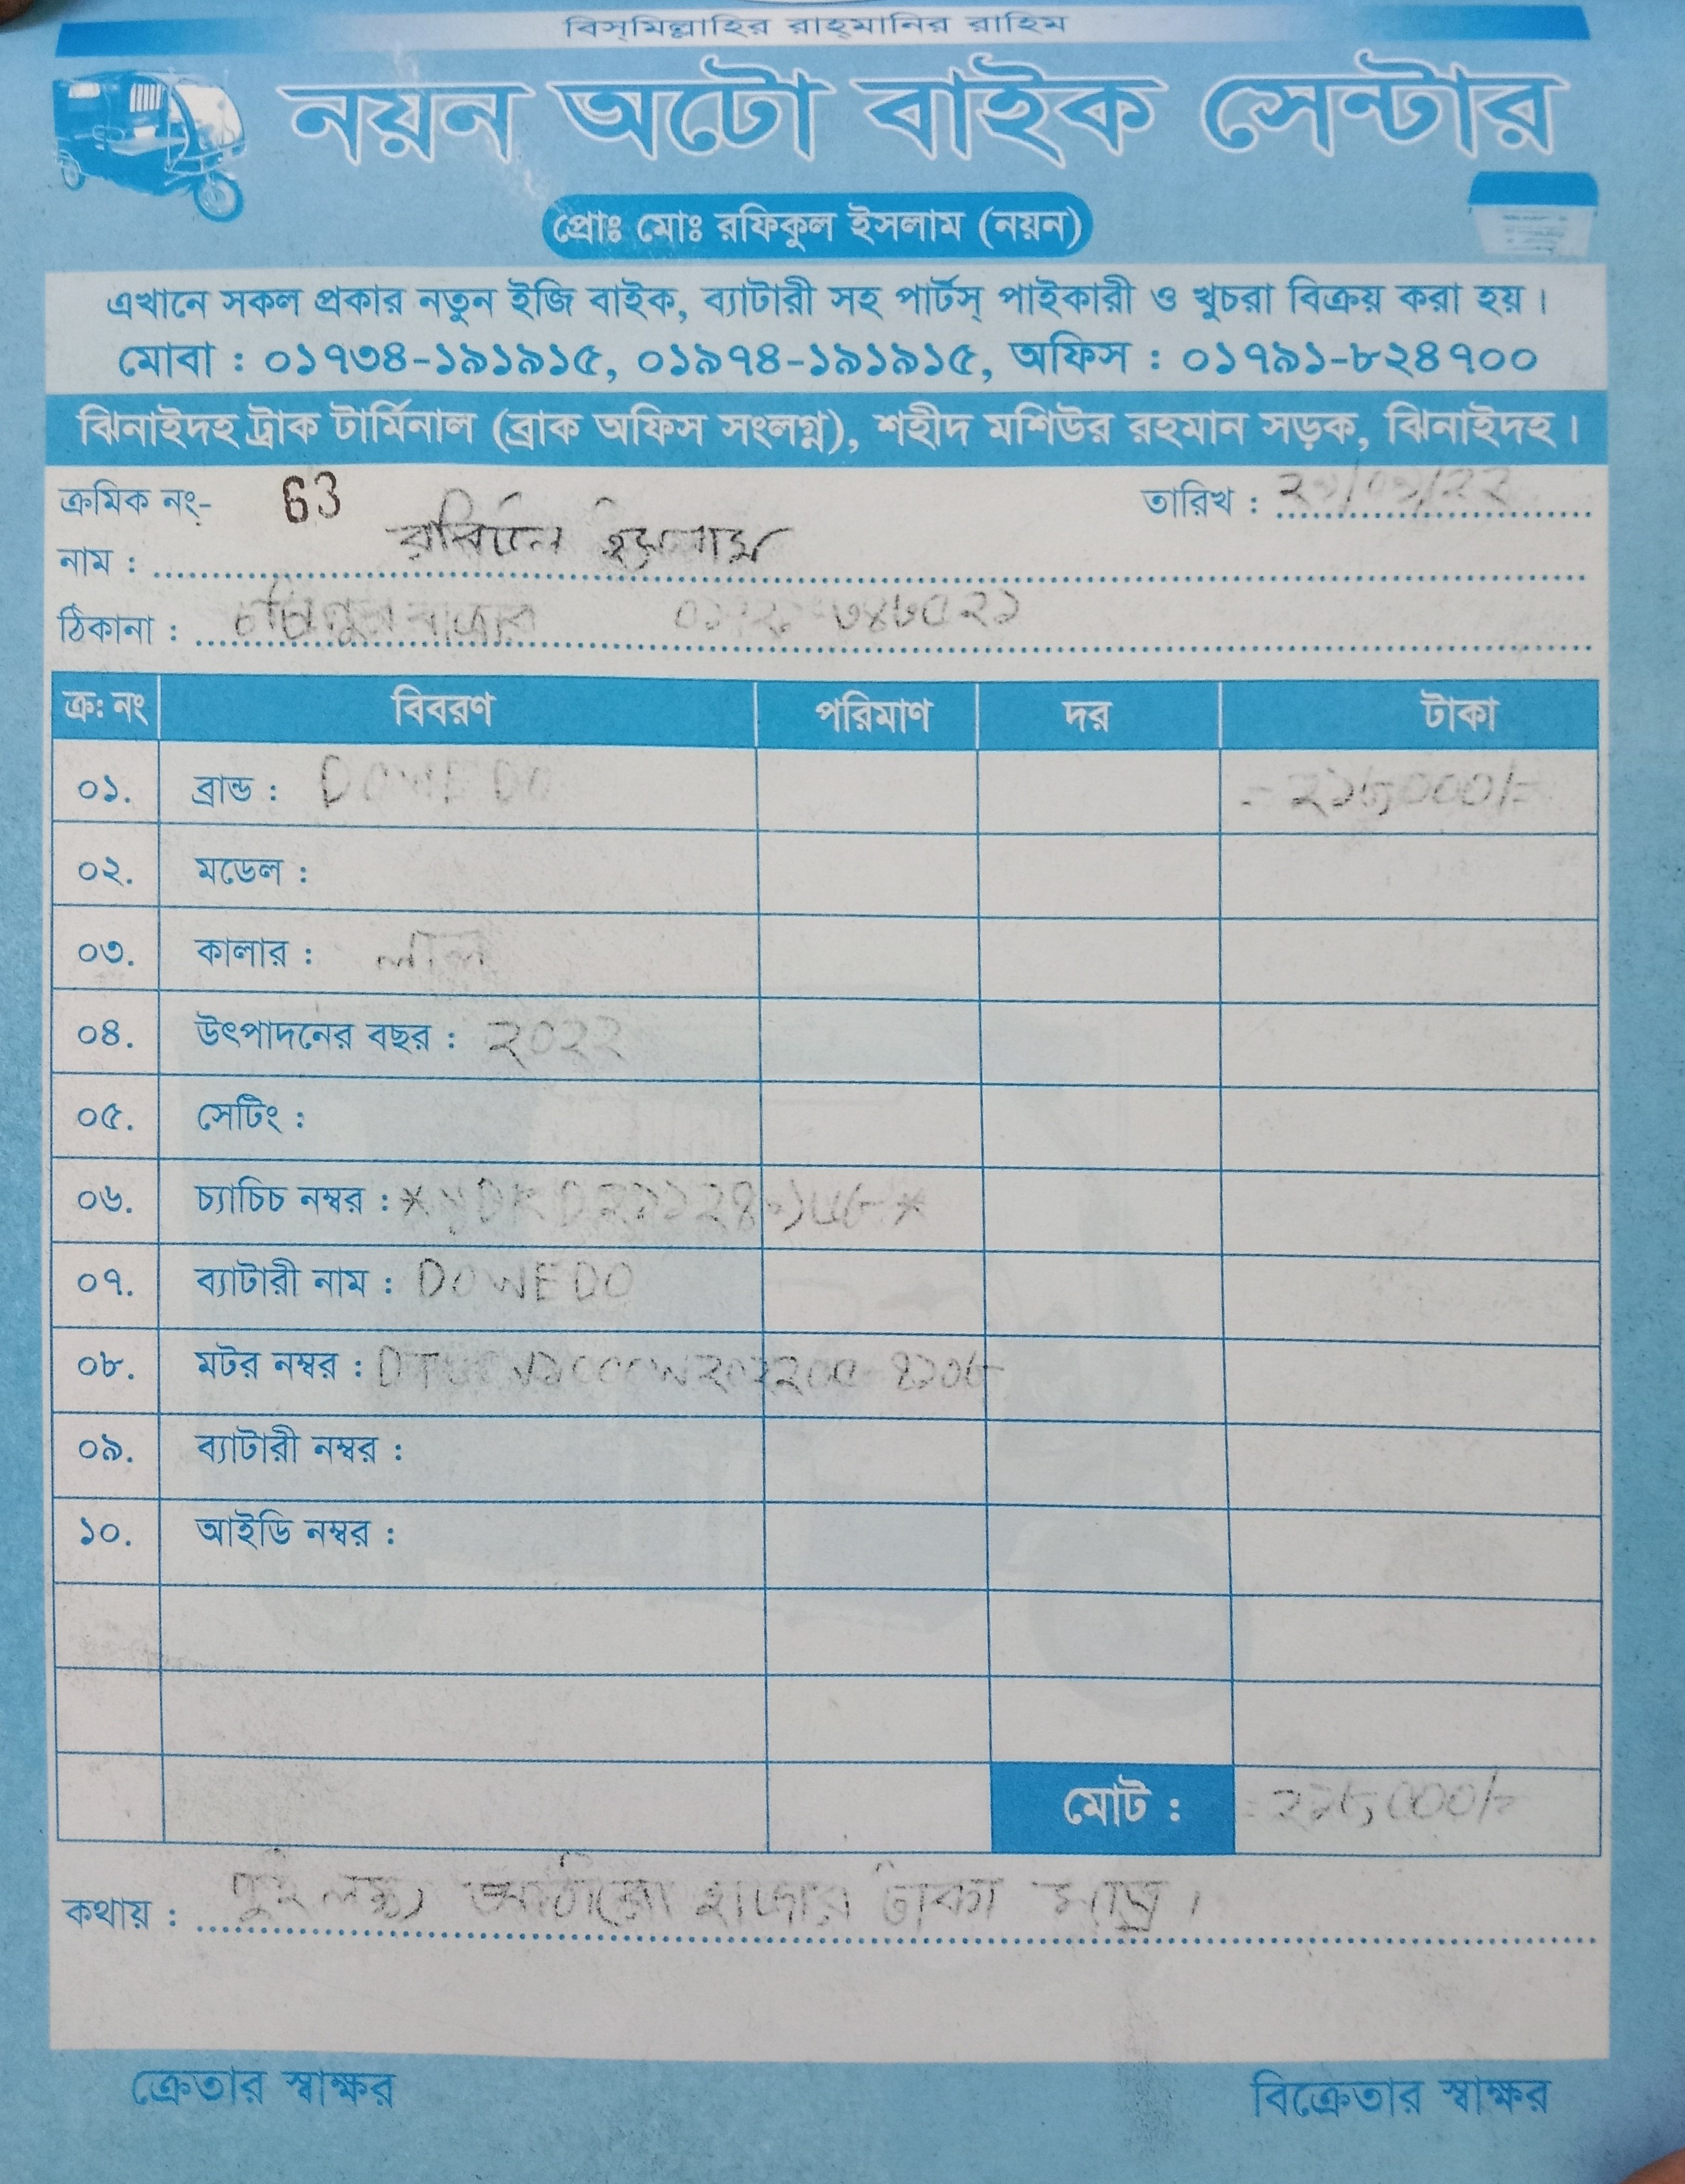 বিস্‌মিল্লাহির রাহ্‌মানির রাহিম
নয়ন অটো বাইক সেন্টার
প্রোঃ মোঃ রফিকুল ইসলাম (নয়ন)
এখানে সকল প্রকার নতুন ইজি বাইক, ব্যাটারী সহ পার্টস্ পাইকারী ও খুচরা বিক্রয় করা হয়।
মোবা : ০১৭৩৪-১৯১৯১৫, ০১৯৭৪-১৯১৯১৫, অফিস : ০১৭৯১-৮২৪৭০০
ঝিনাইদহ ট্রাক টার্মিনাল (ব্রাক অফিস সংলগ্ন), শহীদ মশিউর রহমান সড়ক, ঝিনাইদহ।
ক্রমিক নং- 63 তারিখ :
নাম : ইসলাম
ঠিকানা : বাজার
ক্র: নং বিবরণ পরিমাণ দর টাকা
০১. ব্রান্ড : DOWEDO = ২১৮,০০০/=
০২. মডেল :
০৩. কালার : লাল
০৪. উৎপাদনের বছর : ২০২২
০৫. সেটিং :
০৬. চ্যাচিচ নম্বর :
০৭. ব্যাটারী নাম : DOWEDO
০৮. মটর নম্বর :
০৯. ব্যাটারী নম্বর :
১০. আইডি নম্বর :
মোট : = ২১৮,০০০/=
কথায় : দুই লক্ষ্য আঠারো হাজার টাকা মাত্র।
ক্রেতার স্বাক্ষর বিক্রেতার স্বাক্ষর